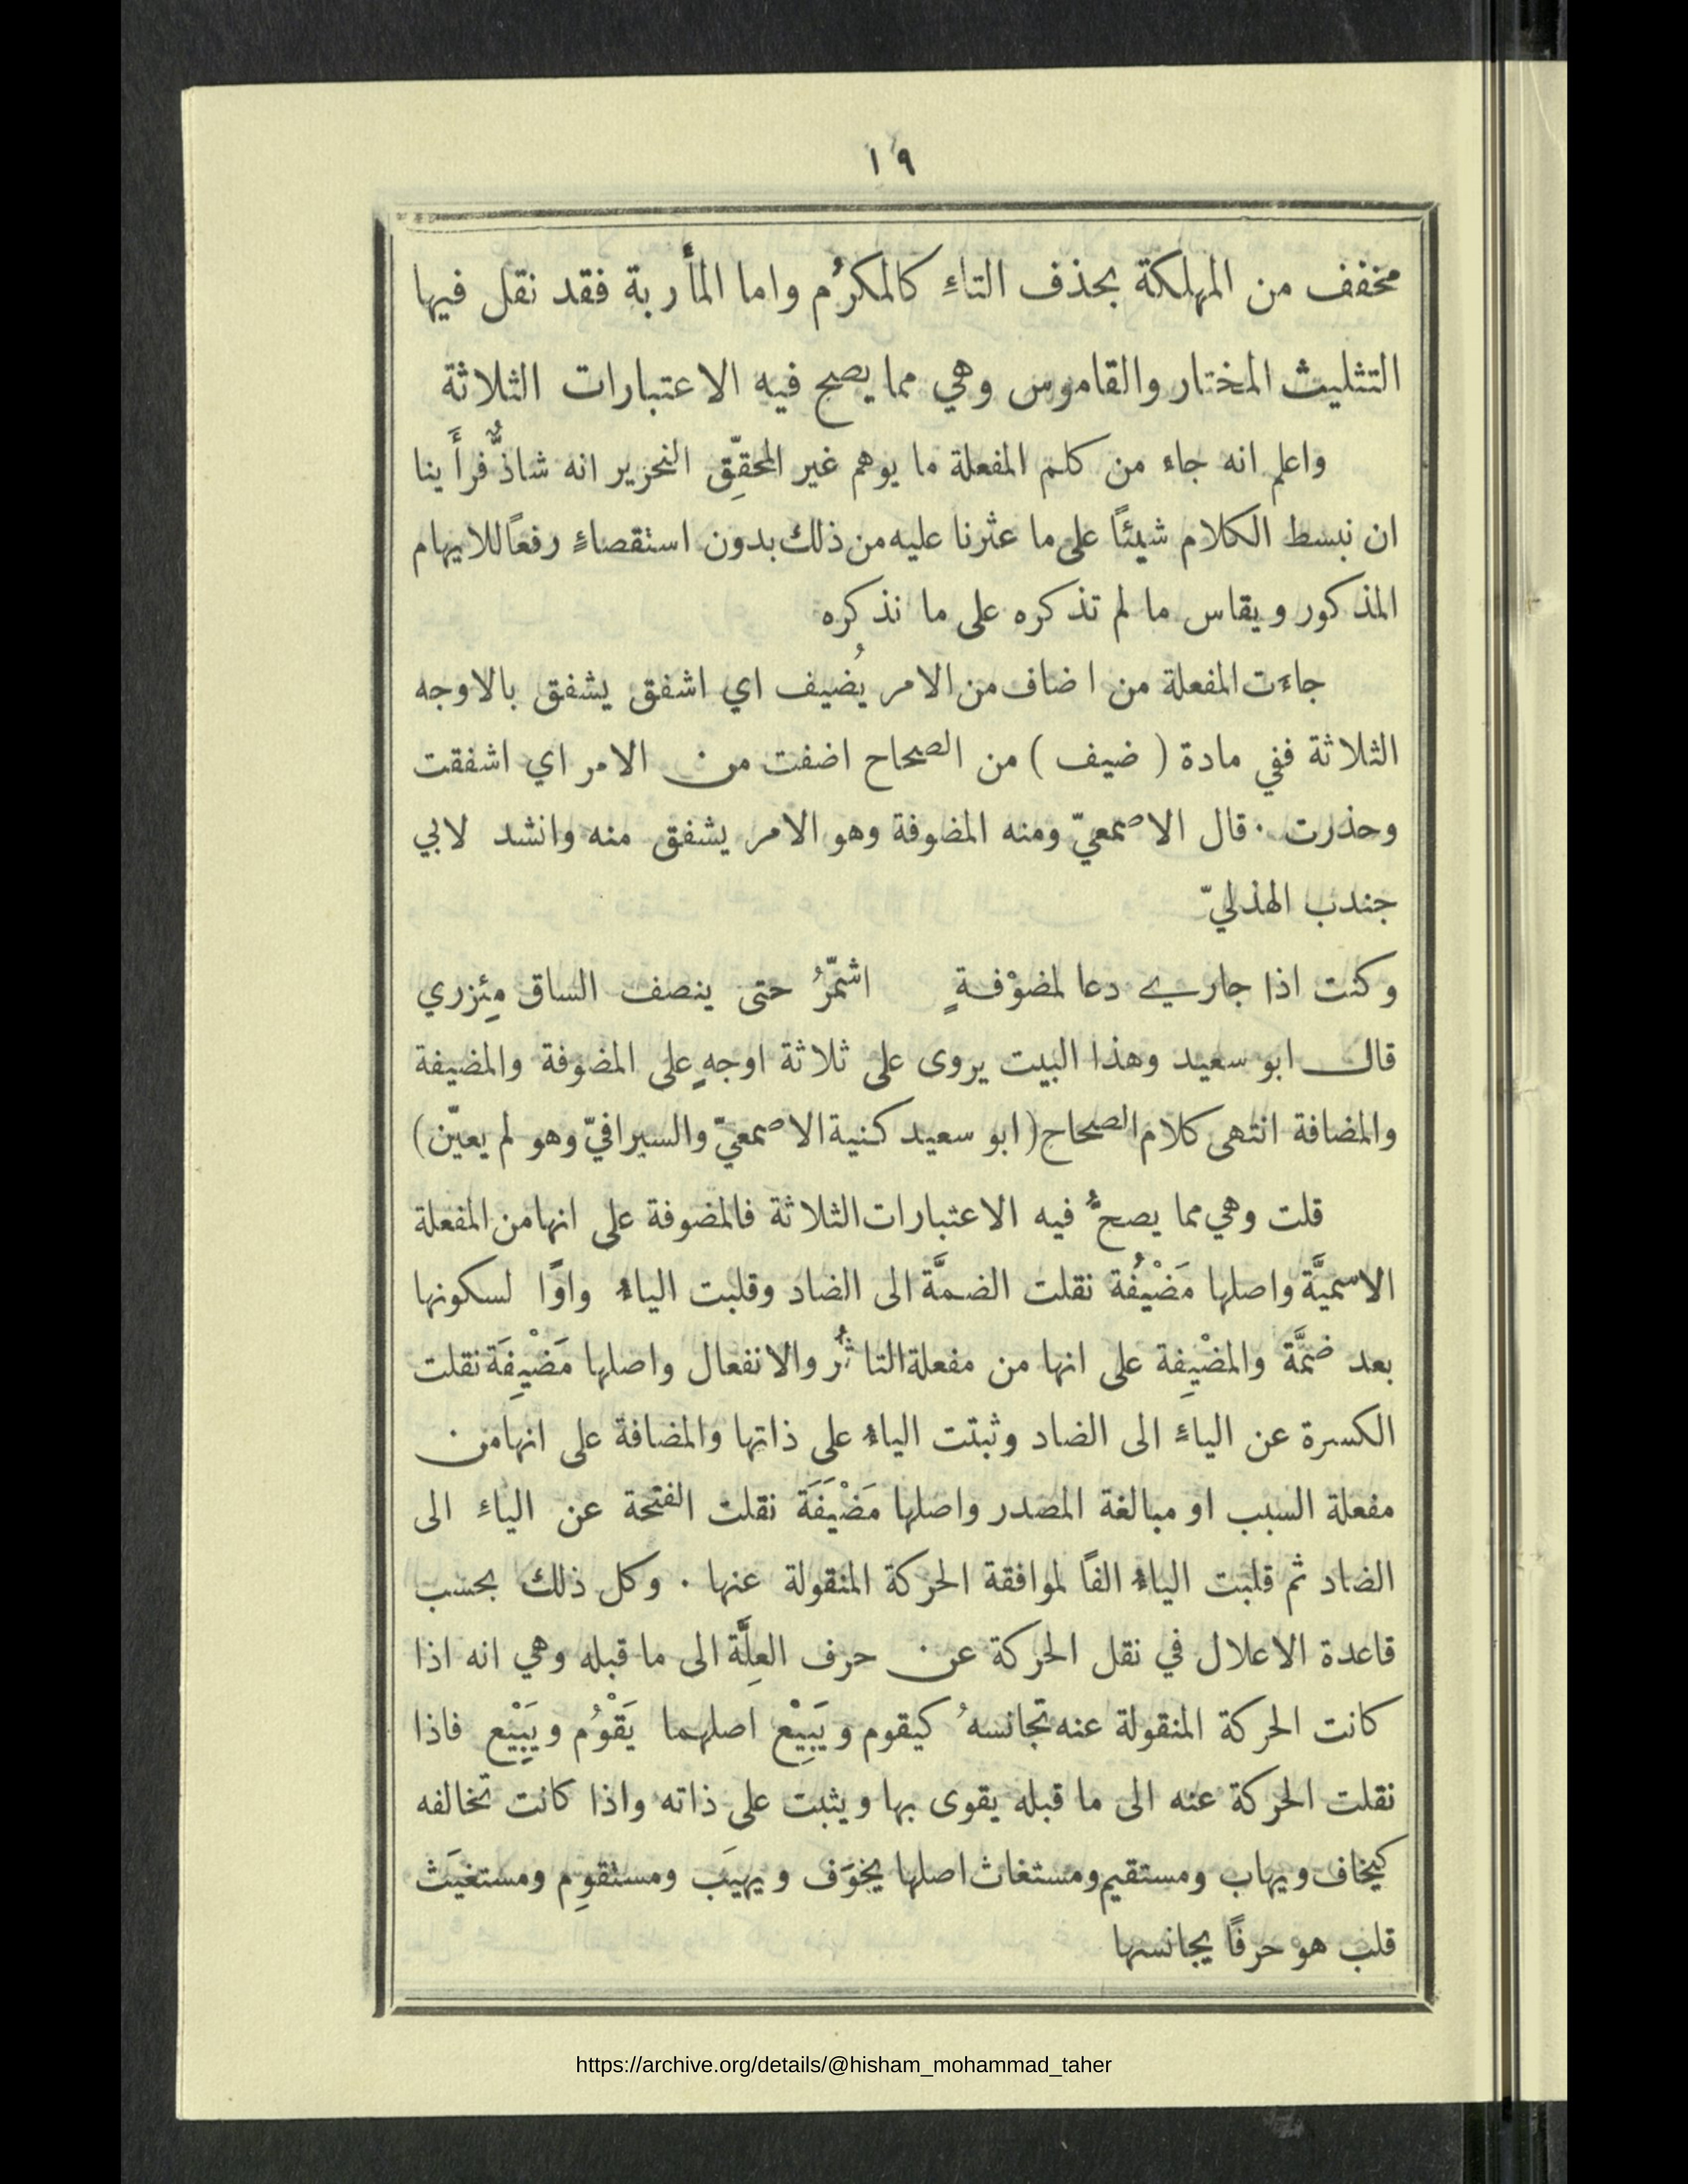 ١٩
مخفف من المهلكة بحذف التاءِ كالمكرُم واما المأَربة فقد نقل فيها
التثليث المختار والقاموس وهي مما يصح فيه الاعتبارات الثلاثة
واعلم انه جاء من كلم المفعلة ما يوهم غير المحقِّق النحرير انه شاذٌّ فرأَينا
ان نبسط الكلام شيئًا على ما عثرنا عليه من ذلك بدون استقصاءٍ رفعًا للايهام
المذكور ويقاس ما لم تذكره على ما نذكره
جاءَت المفعلة من اضاف من الامر يُضيف اي اشفق يشفق بالاوجه
الثلاثة ففي مادة ( ضيف ) من الصحاح اضفت من الامر اي اشفقت
وحذرت ٠ قال الاصمعيّ ومنه المضوفة وهو الامر يشفق منه وانشد لابي
جندب الهذليّ
وكنت اذا جاري دعا لمضوْفةٍ اشمّرُ حتى ينصف الساق مِئزري
قال ابو سعيد وهذا البيت يروى على ثلاثة اوجهٍ على المضوفة والمضيفة
والمضافة انتهى كلام الصحاح ( ابو سعيد كنية الاصمعيّ والسيرافيّ وهو لم يعيّن )
قلت وهي مما يصحُّ فيه الاعتبارات الثلاثة فالمضوفة على انها من المفعلة
الاسميَّة واصلها مَضْيُفة نقلت الضمَّة الى الضاد وقلبت الياءُ واوًا لسكونها
بعد ضمَّة والمضْيِفة على انها من مفعلة التاثُّر والانفعال واصلها مَضْيِفَة نقلت
الكسرة عن الياءِ الى الضاد وثبتت الياءُ على ذاتها والمضافة على انها من
مفعلة السبب او مبالغة المصدر واصلها مَضْيَفَة نقلت الفتحة عن الياءِ الى
الضاد ثم قلبت الياءُ الفًا لموافقة الحركة المنقولة عنها ٠ وكل ذلك بحسب
قاعدة الاعلال في نقل الحركة عن حرف العِلَّة الى ما قبله وهي انه اذا
كانت الحركة المنقولة عنه تجانسهُ كيقوم ويَبِيْع اصلهما يَقْوُم ويَبْيِع فاذا
نقلت الحركة عنه الى ما قبله يقوى بها ويثبت على ذاته واذا كانت تخالفه
كيخاف ويهاب ومستقيم ومستغاث اصلها يخوَف ويهيَب ومستقوِم ومستغيَث
قلب هو حرفًا يجانسها
https://archive.org/details/@hisham_mohammad_taher